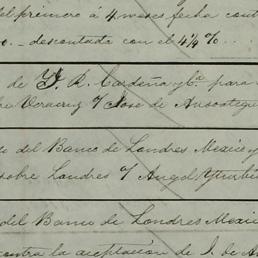 del primero á 4 meses fecha cont
o. - descontada con el 4 1/4 % ...
de Y. R. Cardeña y Ca. para
re Veracruz o/ José de Ansoategui
o del Banco de Londres Mexico y
sobre Londres o/ Angel Yturbi
del Banco de Londres Mexic
contra la aceptación de J. de A